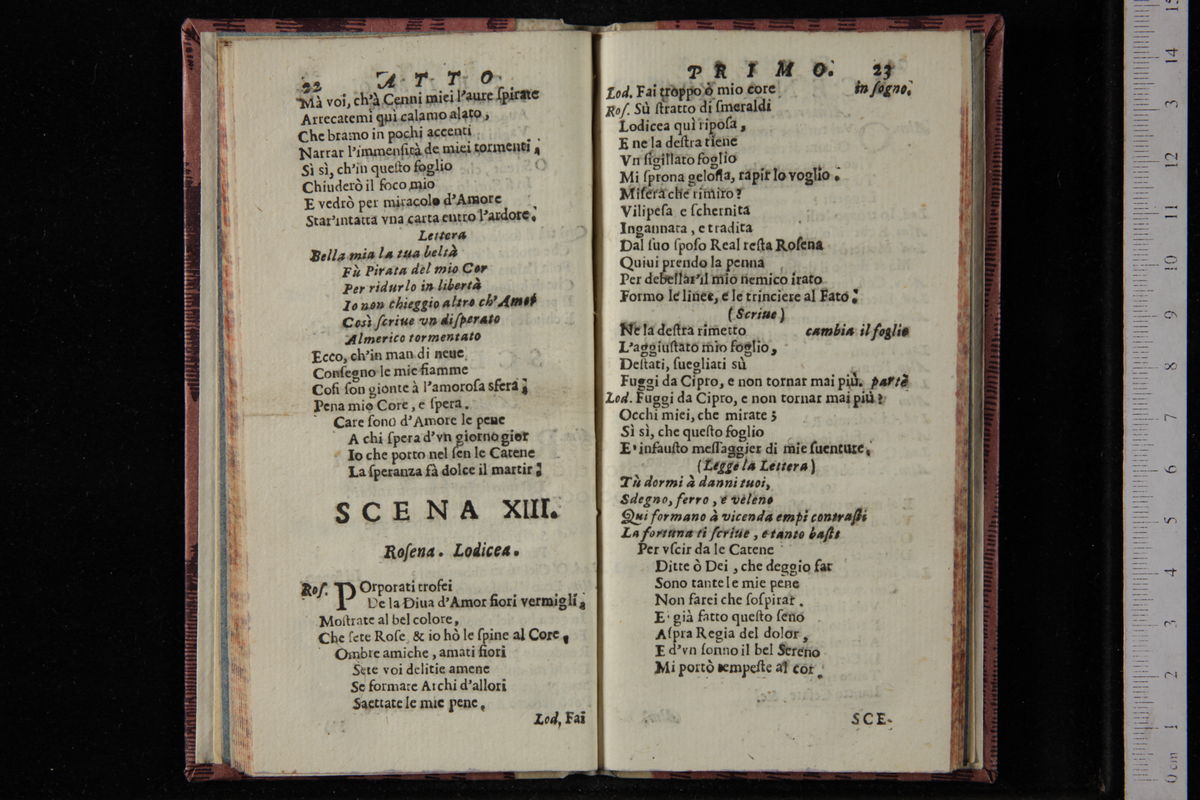 22 ATTO
Mà voi, ch'à Cenni miei l'aure ſpirate
Arrecatemi qui calamo alato,
Che bramo in pochi accenti
Narrar l'immenſità de miei tormenti,
Sì sì, ch'in queſto foglio
Chiuderò il foco mio
E vedrò per miracolo d'Amore
Star'intatta vna carta entro l'ardore.
Lettera
Bella mia la tua beltà
Fù Pirata del mio Cor
Per ridurlo in libertà
Io non chieggio altro ch'Amor
Così ſcriue vn diſperato
Almerico tormentato
Ecco, ch'in man di neue
Conſegno le mie fiamme
Coſi ſon gionte à l'amoroſa sfera;
Pena mio Core, e ſpera.
Care ſono d'Amore le pene
A chi ſpera d'vn giorno gior
Io che porto nel ſen le Catene
La ſperanza fà dolce il martir:
SCENA XIII.
Roſena. Lodicea.
Roſ. POrporati trofei
De la Diua d'Amor fiori vermigli,
Moſtrate al bel colore,
Che ſete Roſe & io hò le ſpine al Core,
Ombre amiche, amati fiori
Sete voi delitie amene
Se formate Archi d'allori
Saettate le mie pene,
Lod, Fai
PRIMO. 23
Lod. Fai troppo ò mio core in ſogno.
Roſ. Sù ſtratto di ſmeraldi
Lodicea quì ripoſa,
E ne la deſtra tiene
Vn ſigillato foglio
Mi ſprona geloſia, rapir lo voglio.
Miſera che rimiro?
Vilipeſa e ſchernita
Ingannata, e tradita
Dal ſuo ſpoſo Real reſta Roſena
Quiui prendo la penna
Per debellar'il mio nemico irato
Formo le linee, e le trinciere al Fato:
(Scriue)
Ne la deſtra rimetto cambia il foglio
L'aggiuſtato mio foglio,
Deſtati, ſuegliati sù
Fuggi da Cipro, e non tornar mai più. parte
Lod. Fuggi da Cipro, e non tornar mai più?
Occhi miei, che mirate;
Sì sì, che queſto foglio
E' infauſto meſſaggier di mie ſuenture.
(Legge la Lettera)
Tù dormi à danni tuoi,
Sdegno, ferro, e veleno
Qui formano à vicenda empi contraſti
La fortuna ti ſcriue, e tanto baſti
Per vſcir da le Catene
Ditte ò Dei, che deggio far
Sono tante le mie pene
Non farei che ſoſpirar.
E' già fatto queſto ſeno
Aſpra Regia del dolor,
E d'vn ſonno il bel Sereno
Mi portò tempeſte al cor.
SCE-
15
14
13
12
11
10
9
8
7
6
5
4
3
2
1
0 cm